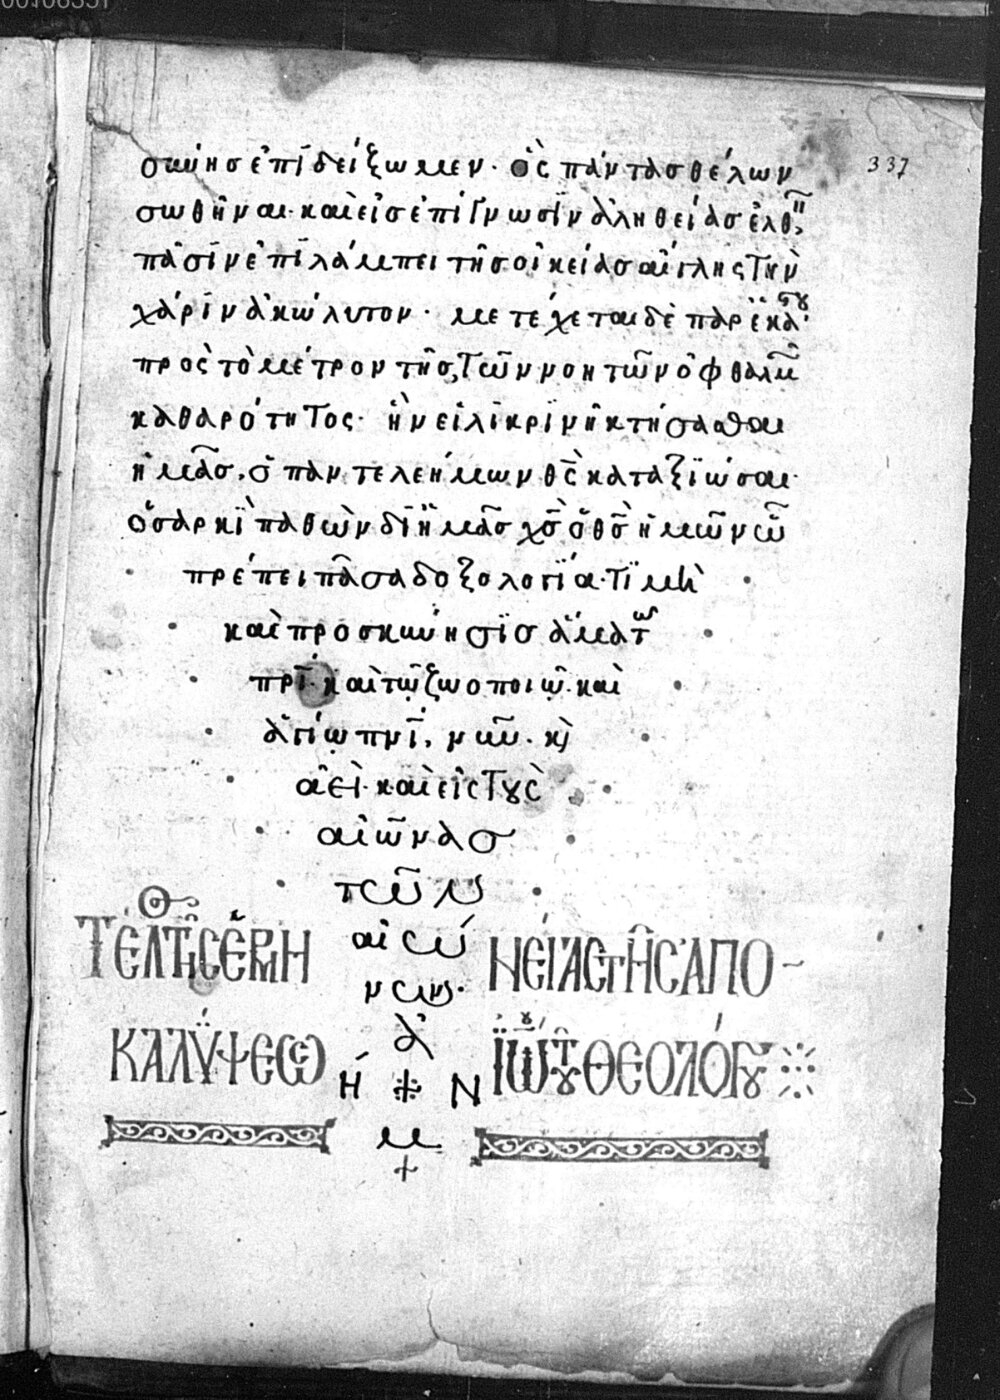 σύνης ἐπιδείξωμεν· ὃς πάντας θέλων
σωθῆναι· καὶ εἰς ἐπίγνωσιν ἀληθείας ἐλθεῖν,
πᾶσιν ἐπιλάμπει τῆς οἰκείας αἴγλης τὴν
χάριν ἀκώλυτον· μετέχεται δὲ παρ' ἑκάστου
πρὸς τὸ μέτρον τῆς, τῶν νοητῶν ὀφθαλμῶν
καθαρότητος· ἣν εἰλικρινῆ κτήσασθαι
ἡμᾶς, ὁ παντελεήμων θς καταξιώσαι·
ὁ σαρκὶ παθὼν δι' ἡμᾶς χς ὁ θς ἡμῶν ὧ
πρέπει πᾶσα δοξολογία· τιμὴ
καὶ προσκύνησις ἅμα τῶ
πρι· καὶ τῷ ζωοποιῷ· καὶ
ἁγίῳ πνι, νῦν· κ(αὶ)
ἀεὶ· καὶ εἰς τοὺς
αἰῶνας
τῶν
αἰώ
νων·
ἀ
μ
ή ν
337
Τέλ(ος) τῆς ἑρμηνείας τῆς ἀπο-
καλύψεως Ἰω(άνν)ου τοῦ θεολόγου